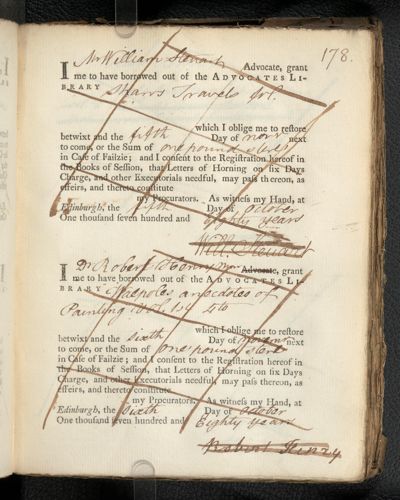 178.
Mr William Steuart Advocate, grant
I me to have borrowed out of the ADVOCATES LI-
BRARY Shaws Travels fol.
which I oblige me to reſtore
betwixt and the fifth Day of novr next
to come, or the Sum of one pound sterg
in Caſe of Failzie; and I conſent to the Regiſtration hereof in
the Books of Seſſion, that Letters of Horning on ſix Days
Charge, and other Executorials needful, may paſs thereon, as
effeirs, and thereto conſtitute
my Procurators. As witneſs my Hand, at
Edinburgh, the fifth Day of October
One thouſand ſeven hundred and eighty years
Will: Steuart
Dr Robert Henry Advocate, grant
I me to have borrowed out of the ADVOCATES LI-
BRARY Walpoles anecdotes of
Painting Vol. 1st 4to
which I oblige me to reſtore
betwixt and the sixth Day of next
to come, or the Sum of One pound sterg
in Caſe of Failzie; and I conſent to the Regiſtration hereof in
the Books of Seſſion, that Letters of Horning on ſix Days
Charge, and other Executorials needful, may paſs thereon, as
effeirs, and thereto conſtitute
my Procurators. As witneſs my Hand, at
Edinburgh, the Sixth Day of October
One thouſand ſeven hundred and Eighty years
Robert Henry